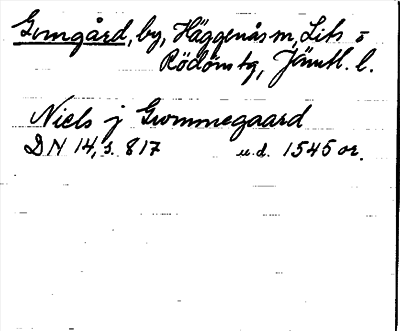 Gomgård, by, Häggenås sn, Lits o
Rödöns tg, Jämtl. l.
Niels j Gwmmegaard
DN 14, s. 817 u.d. 1545 or.